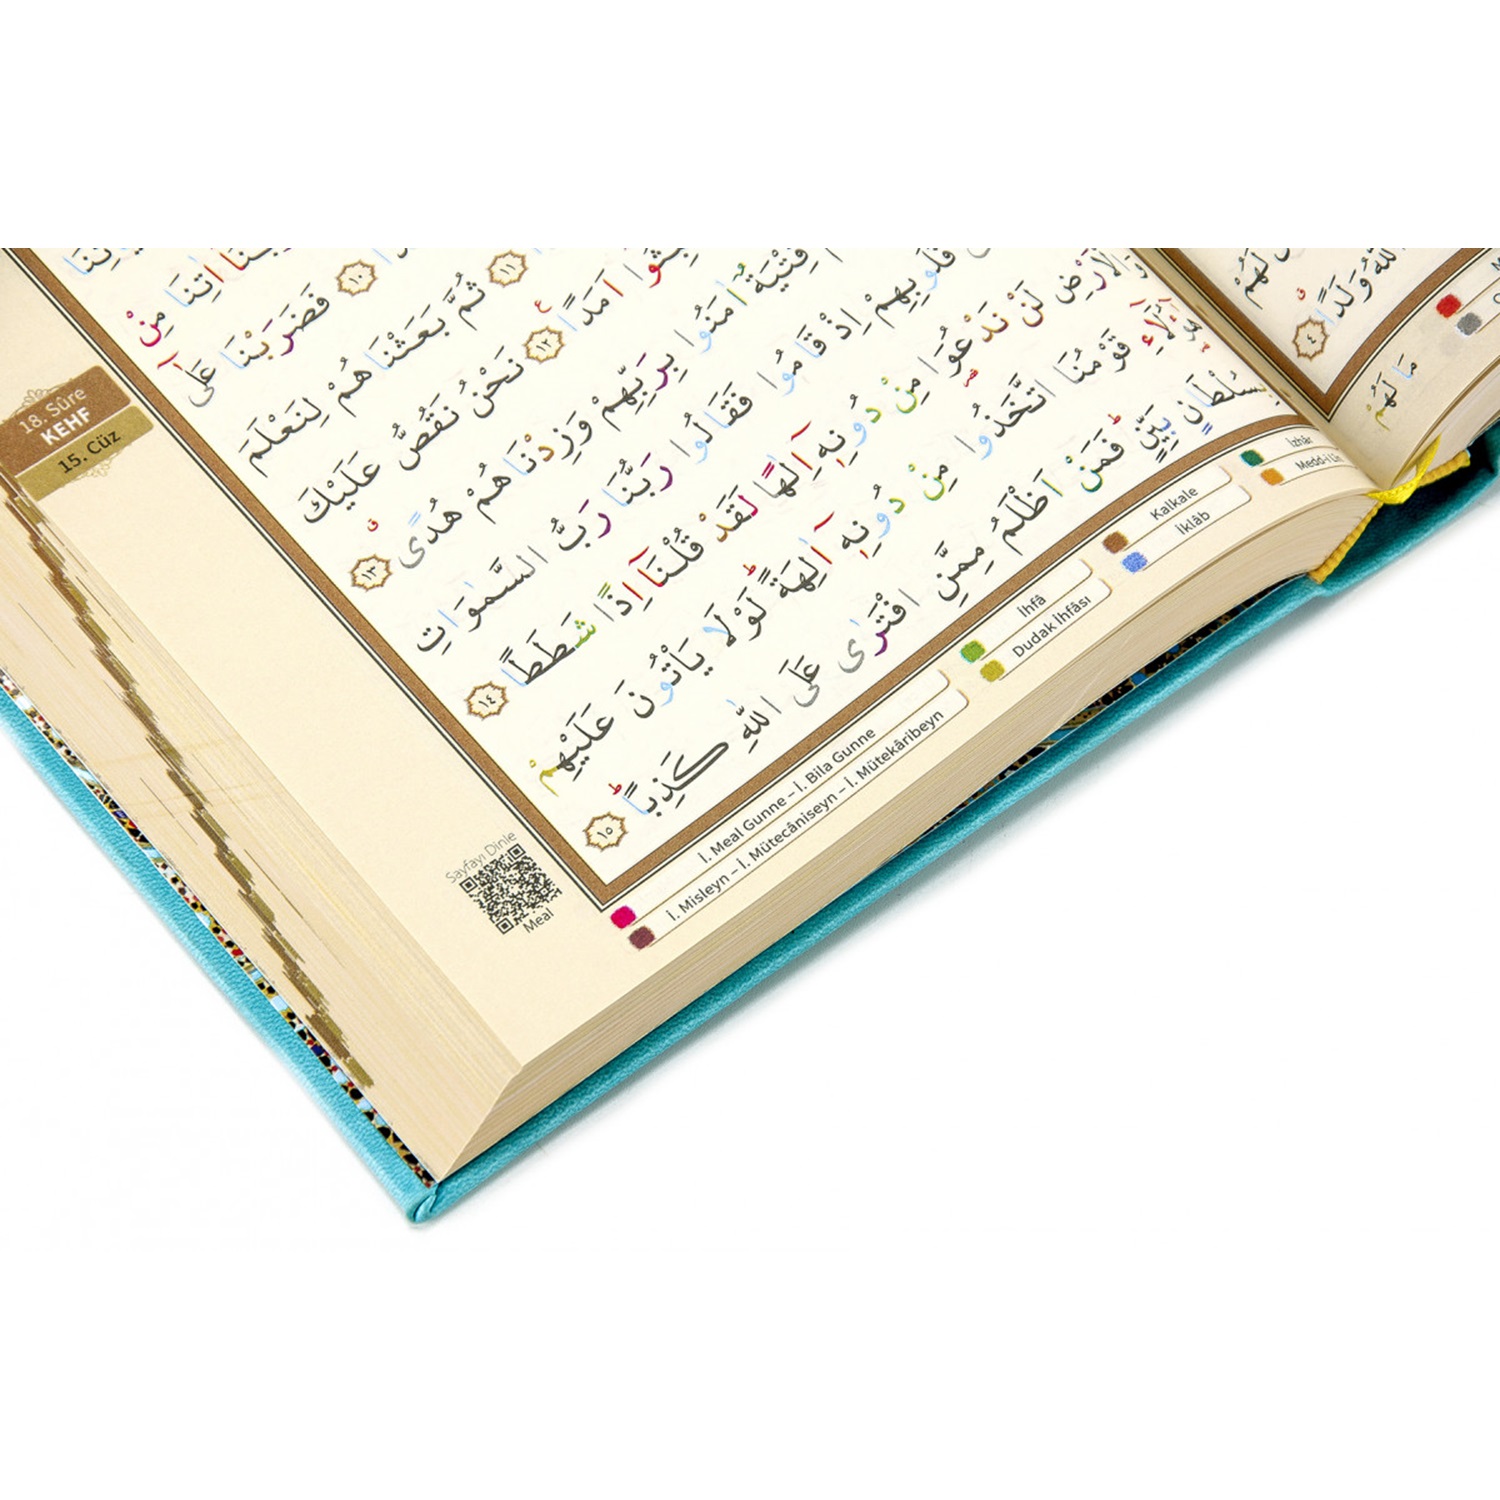 18. Sûre
KEHF
15. Cüz
اٰتِنَا مِنْ
﴿١٠﴾ فَضَرَبْنَا عَلٰٓى
﴿١١﴾ ثُمَّ بَعَثْنَاهُمْ لِنَعْلَمَ
اَمَدًاۚ ﴿١٢﴾ نَحْنُ نَقُصُّ عَلَيْكَ
فِتْيَةٌ اٰمَنُوا بِرَبِّهِمْ وَزِدْنَاهُمْ هُدًىۗ ﴿١٣﴾
قُلُوبِهِمْ اِذْ قَامُوا فَقَالُوا رَبُّنَا رَبُّ السَّمٰوَاتِ
وَالْاَرْضِ لَنْ نَدْعُوَا مِنْ دُونِهٖٓ اِلٰهًا لَقَدْ قُلْنَٓا اِذًا شَطَطًا ﴿١٤﴾
هٰٓؤُ۬لَٓاءِ قَوْمُنَا اتَّخَذُوا مِنْ دُونِهٖٓ اٰلِهَةًۜ لَوْلَا يَأْتُونَ عَلَيْهِمْ
بِسُلْطَانٍ بَيِّنٍۜ فَمَنْ اَظْلَمُ مِمَّنِ افْتَرٰى عَلَى اللّٰهِ كَذِبًاۜ ﴿١٥﴾
Sayfayı Dinle
Meal
İ. Meal Gunne – İ. Bila Gunne
İ. Misleyn – İ. Mütecâniseyn – İ. Mütekâribeyn
İhfâ
Dudak İhfâsı
Kalkale
İklâb
İzhâr
اللّٰهُ وَلَدًاۗ ﴿٤﴾
مَا لَهُمْ